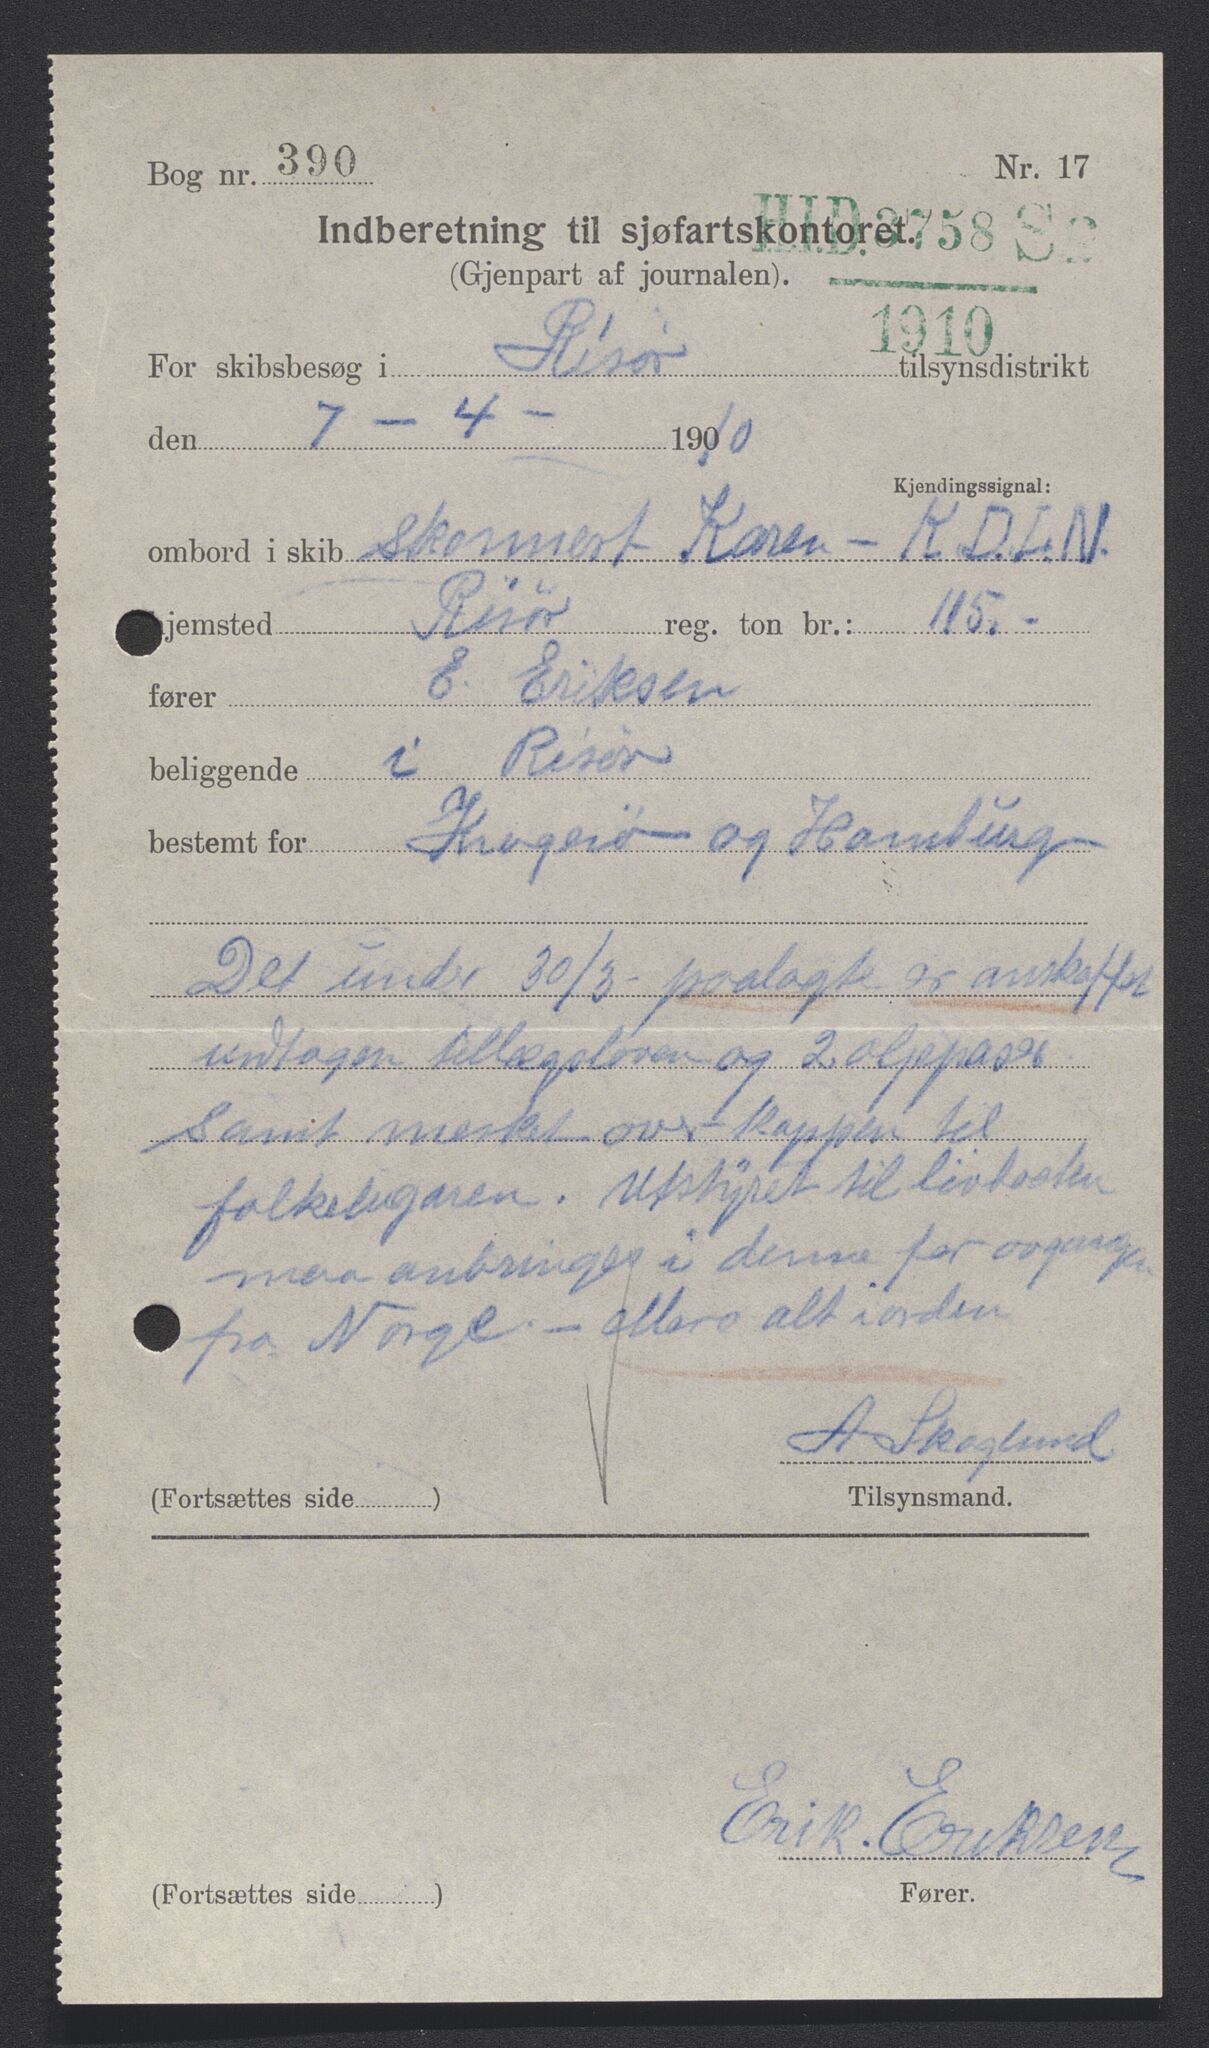 Bog nr. 390 Nr. 17
Indberetning til sjøfartskontoret.
H.I.D. 3758 Sø
1910
(Gjenpart af journalen).
For skibsbesøg i Risør tilsynsdistrikt
den 7 - 4 - 190 10
Kjendingssignal:
ombord i skib skonnert Karen - K.D.L.N.
hjemsted Risör reg. ton br.: 115. -
fører E. Eriksen
beliggende i Risör
bestemt for Kragerö og Hamburg
Det under 30/3 - paalagte er anskaffet
undtagen tillægsloven og 2 oljepasse
Samt merket over kappen til
folkelugaren. Utstyret til livbaaden
maa anbringes i denne før avgangen
fra Norge. - ellers alt iorden
A Skoglund
(Fortsættes side ) Tilsynsmand.
Erik. Eriksen
(Fortsættes side ) Fører.